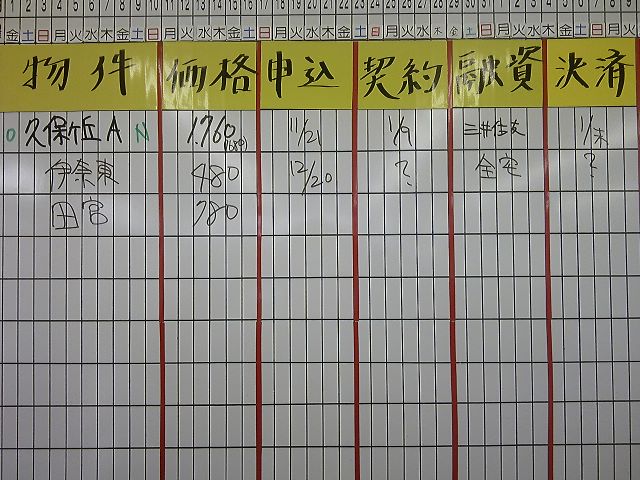 1 2 3 4 5 6 7 8 9 10 11 12 13 14 15 16 17 18 19 20 21 22 23 24 25 26 27 28 29 30 31
金 土 日 月 火 水 木 金 土 日 月 火 水 木 金 土 日 月 火 水 木 金 土 日 月 火 水 木 金 土 日 月 火 水 木 金 土 日 月
物件 価格 申込 契約 融資 決済
O 久保ケ丘A N 1.760 (1680) 11/21 1/9 三井住友 1/末
伊奈東 480 12/20 ? 全宅 ?
田宮 780